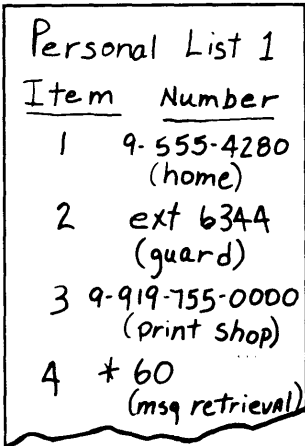 Personal List 1
Item Number
1 9-555-4280
(home)
2 ext 6344
(guard)
3 9-919-755-0000
(print shop)
4 * 60
(msg retrieval)